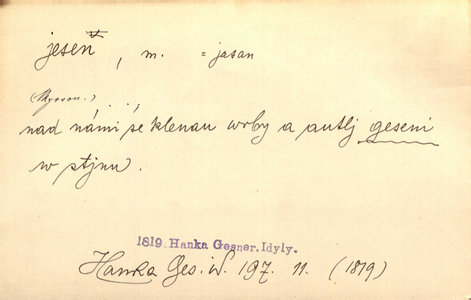 jeseň, m. = jasan
nad námi se klenau wrby a autlj geseni
w stjnu.
1819 Hanka Gesner. Idyly.
Hanka Ges. W. 197. 11. (1819)